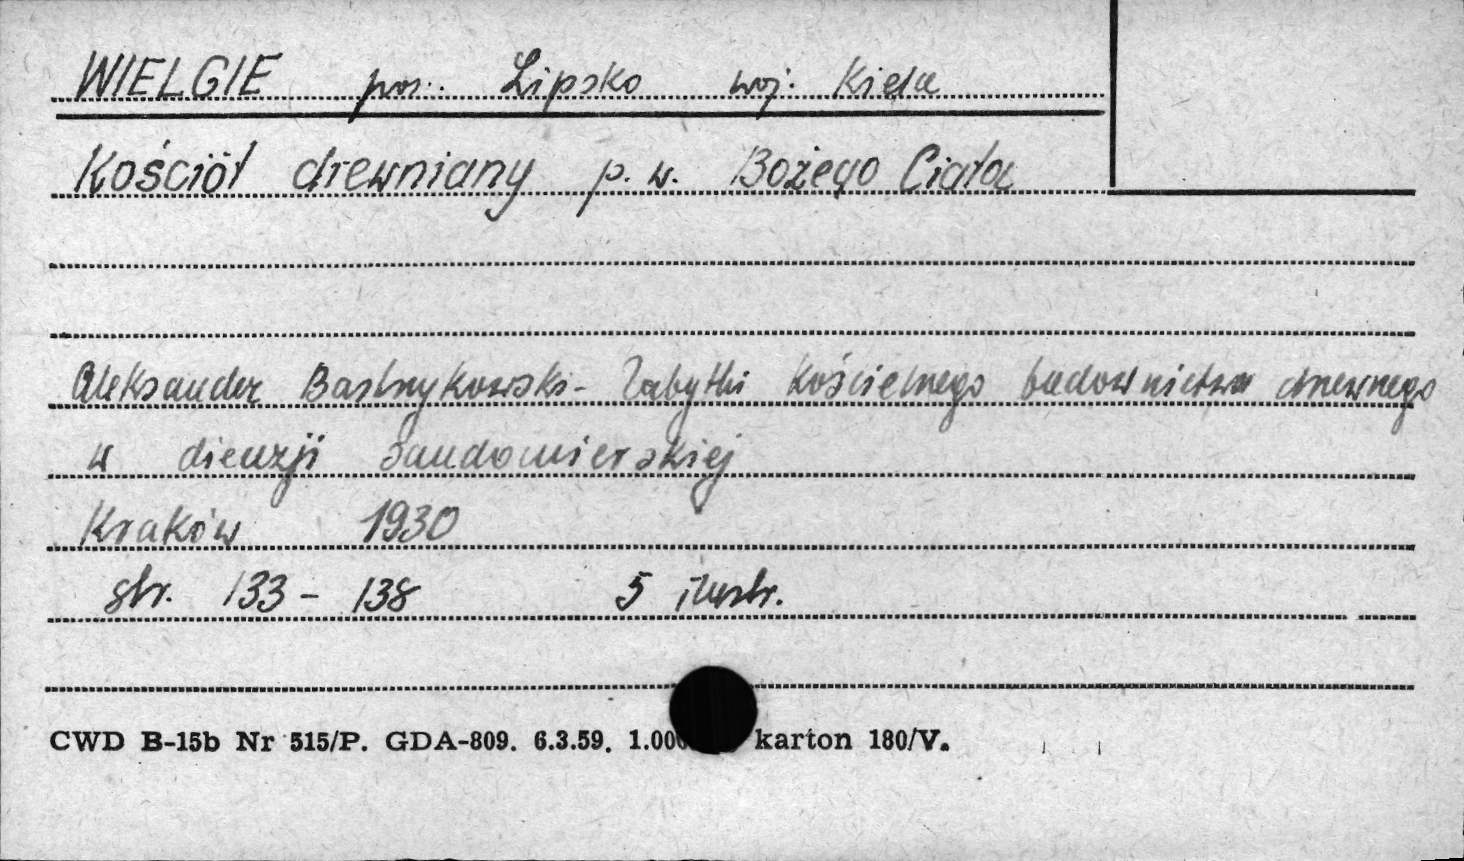 WIELGIE pow. Lipsko woj. Kielce
Kościół drewniany p.w. Bożego Ciała
Aleksander Bastrzykowski - Zabytki kościelnego budownictwa drewnego
w diecezji Sandomierskiej
Kraków 1930
str. 133 - 138 5 ilustr.
CWD B-15b Nr 515/P. GDA-809. 6.3.59. karton 180/V.